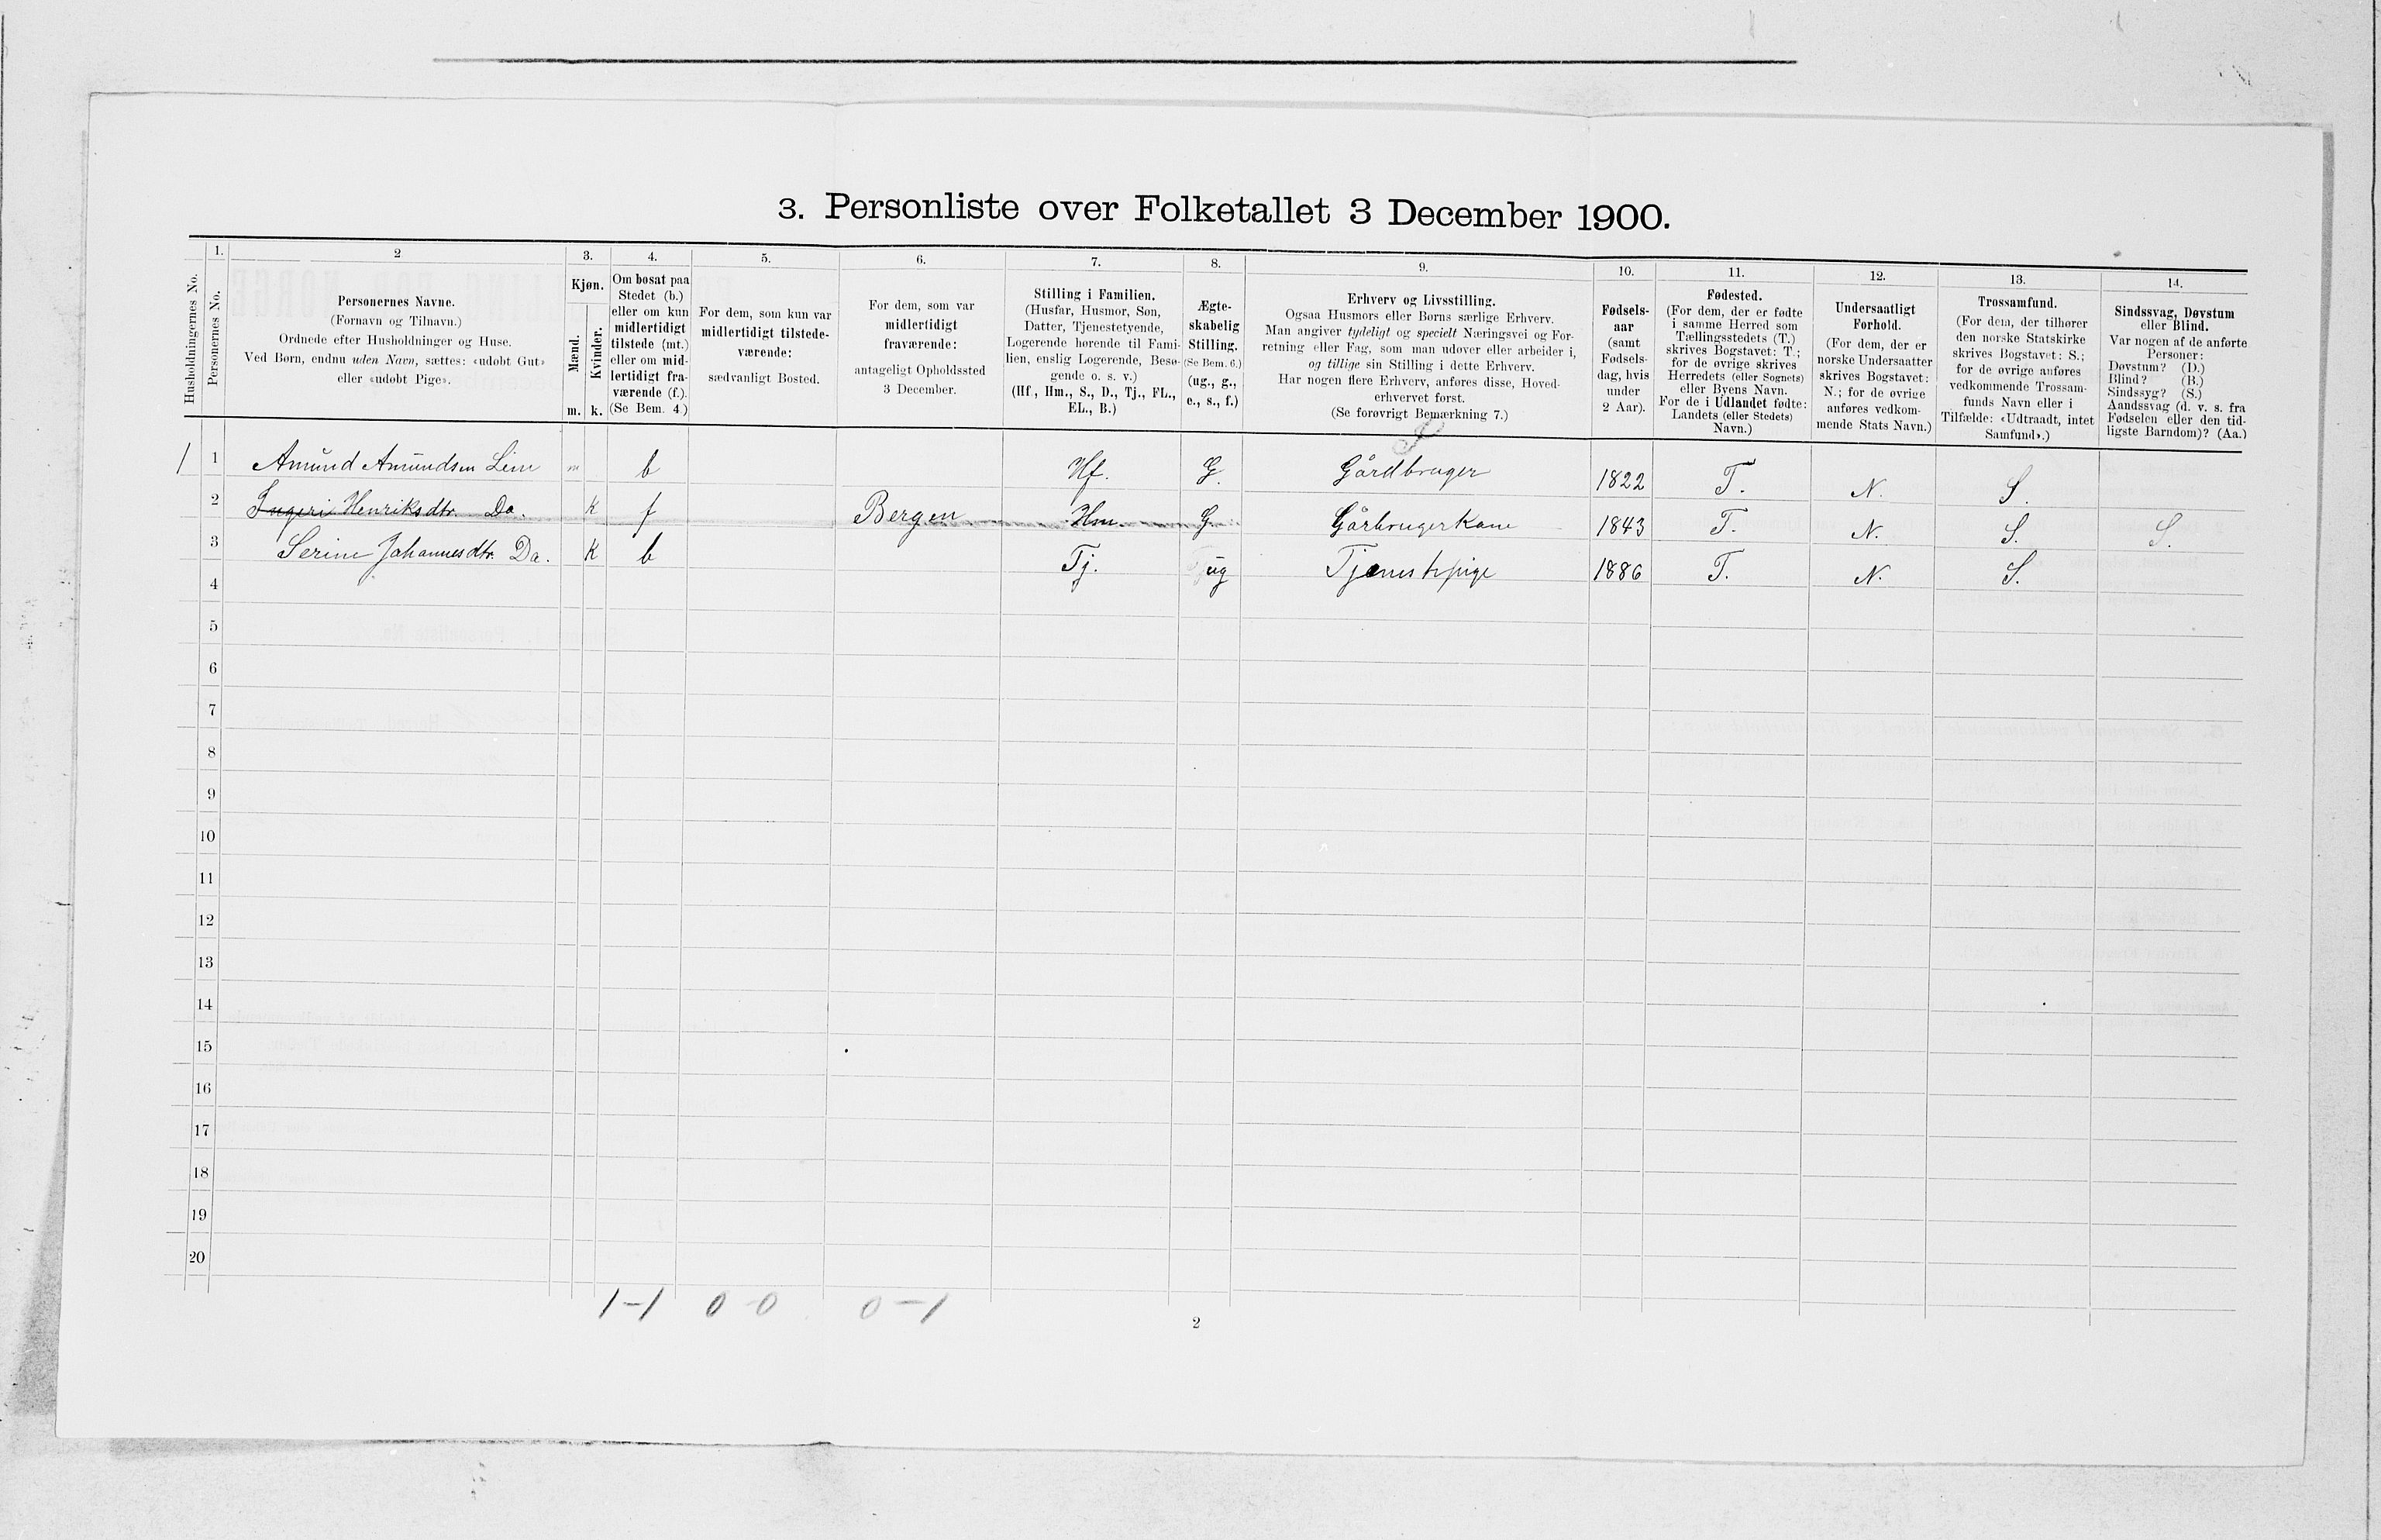 3. Personliste over Folketallet 3 December 1900.
Husholdningernes No.
1.
Personernes No.
2
Personernes Navne.
(Fornavn og Tilnavn.)
Ordnede efter Husholdninger og Huse.
Ved Børn, endnu uden Navn, sættes: «udøbt Gut»
eller «udøbt Pige».
3.
Kjøn.
Mænd.
Kvinder.
m. k.
4.
Om bosat paa
Stedet (b.)
eller om kun
midlertidigt
tilstede (mt.)
eller om mid-
lertidigt fra-
værende (f.).
(Se Bem. 4.)
5.
For dem, som kun var
midlertidigt tilstede-
værende:
sædvanligt Bosted.
6.
For dem, som var
midlertidigt
fraværende:
antageligt Opholdssted
3 December.
7.
Stilling i Familien.
(Husfar, Husmor, Søn,
Datter, Tjenestetyende,
Logerende hørende til Fami-
lien, enslig Logerende, Besø-
gende o. s. v.)
(Hf., Hm., S., D., Tj., FL.,
EL., B.)
8.
Ægte-
skabelig
Stilling.
(Se Bem. 6.)
(ug., g.,
e., s., f.)
9.
Erhverv og Livsstilling.
Ogsaa Husmors eller Børns særlige Erhverv.
Man angiver tydeligt og specielt Næringsvei og For-
retning eller Fag, som man udøver eller arbeider i,
og tillige sin Stilling i dette Erhverv.
Har nogen flere Erhverv, anføres disse, Hoved-
erhvervet først.
(Se forøvrigt Bemærkning 7.)
10.
Fødsels-
aar
(samt
Fødsels-
dag, hvis
under
2 Aar).
11.
Fødested.
(For dem, der er fødte
i samme Herred som
Tællingsstedets (T.)
skrives Bogstavet: T.;
for de øvrige skrives
Herredets (eller Sognets)
eller Byens Navn.
For de i Udlandet fødte:
Landets (eller Stedets)
Navn.)
12.
Undersaatligt
Forhold.
(For dem, der er
norske Undersaatter
skrives Bogstavet:
N.; for de øvrige
anføres vedkom-
mende Stats Navn.)
13.
Trossamfund.
(For dem, der tilhører
den norske Statskirke
skrives Bogstavet: S.;
for de øvrige anføres
vedkommende Trossam-
funds Navn eller i
Tilfælde: «Udtraadt, intet
Samfund».)
14.
Sindssvag, Døvstum
eller Blind.
Var nogen af de anførte
Personer:
Døvstum? (D.)
Blind? (B.)
Sindssyg? (S.)
Aandssvag (d. v. s. fra
Fødselen eller den tid-
ligste Barndom)? (Aa.)
1 1 Amund Amundsen m b Hf. G. Gårdbruger 1822 T. N. S.
2 Ingeri Henriksdtr. Do. k f Bergen Hm. G. Gårbrugerkone 1843 T. N. S. S.
3 Serine Johannesdtr. Do. k b Tj. ug Tjenestepige 1886 T. N. S.
4
5
6
7
8
9
10
11
12
13
14
15
16
17
18
19
20
1-1 0 0 0-1
2